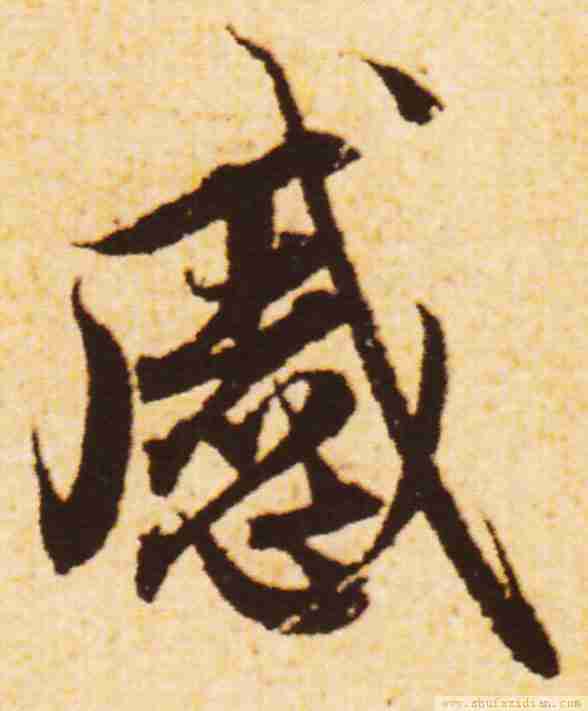 慼
www.shufazidian.com